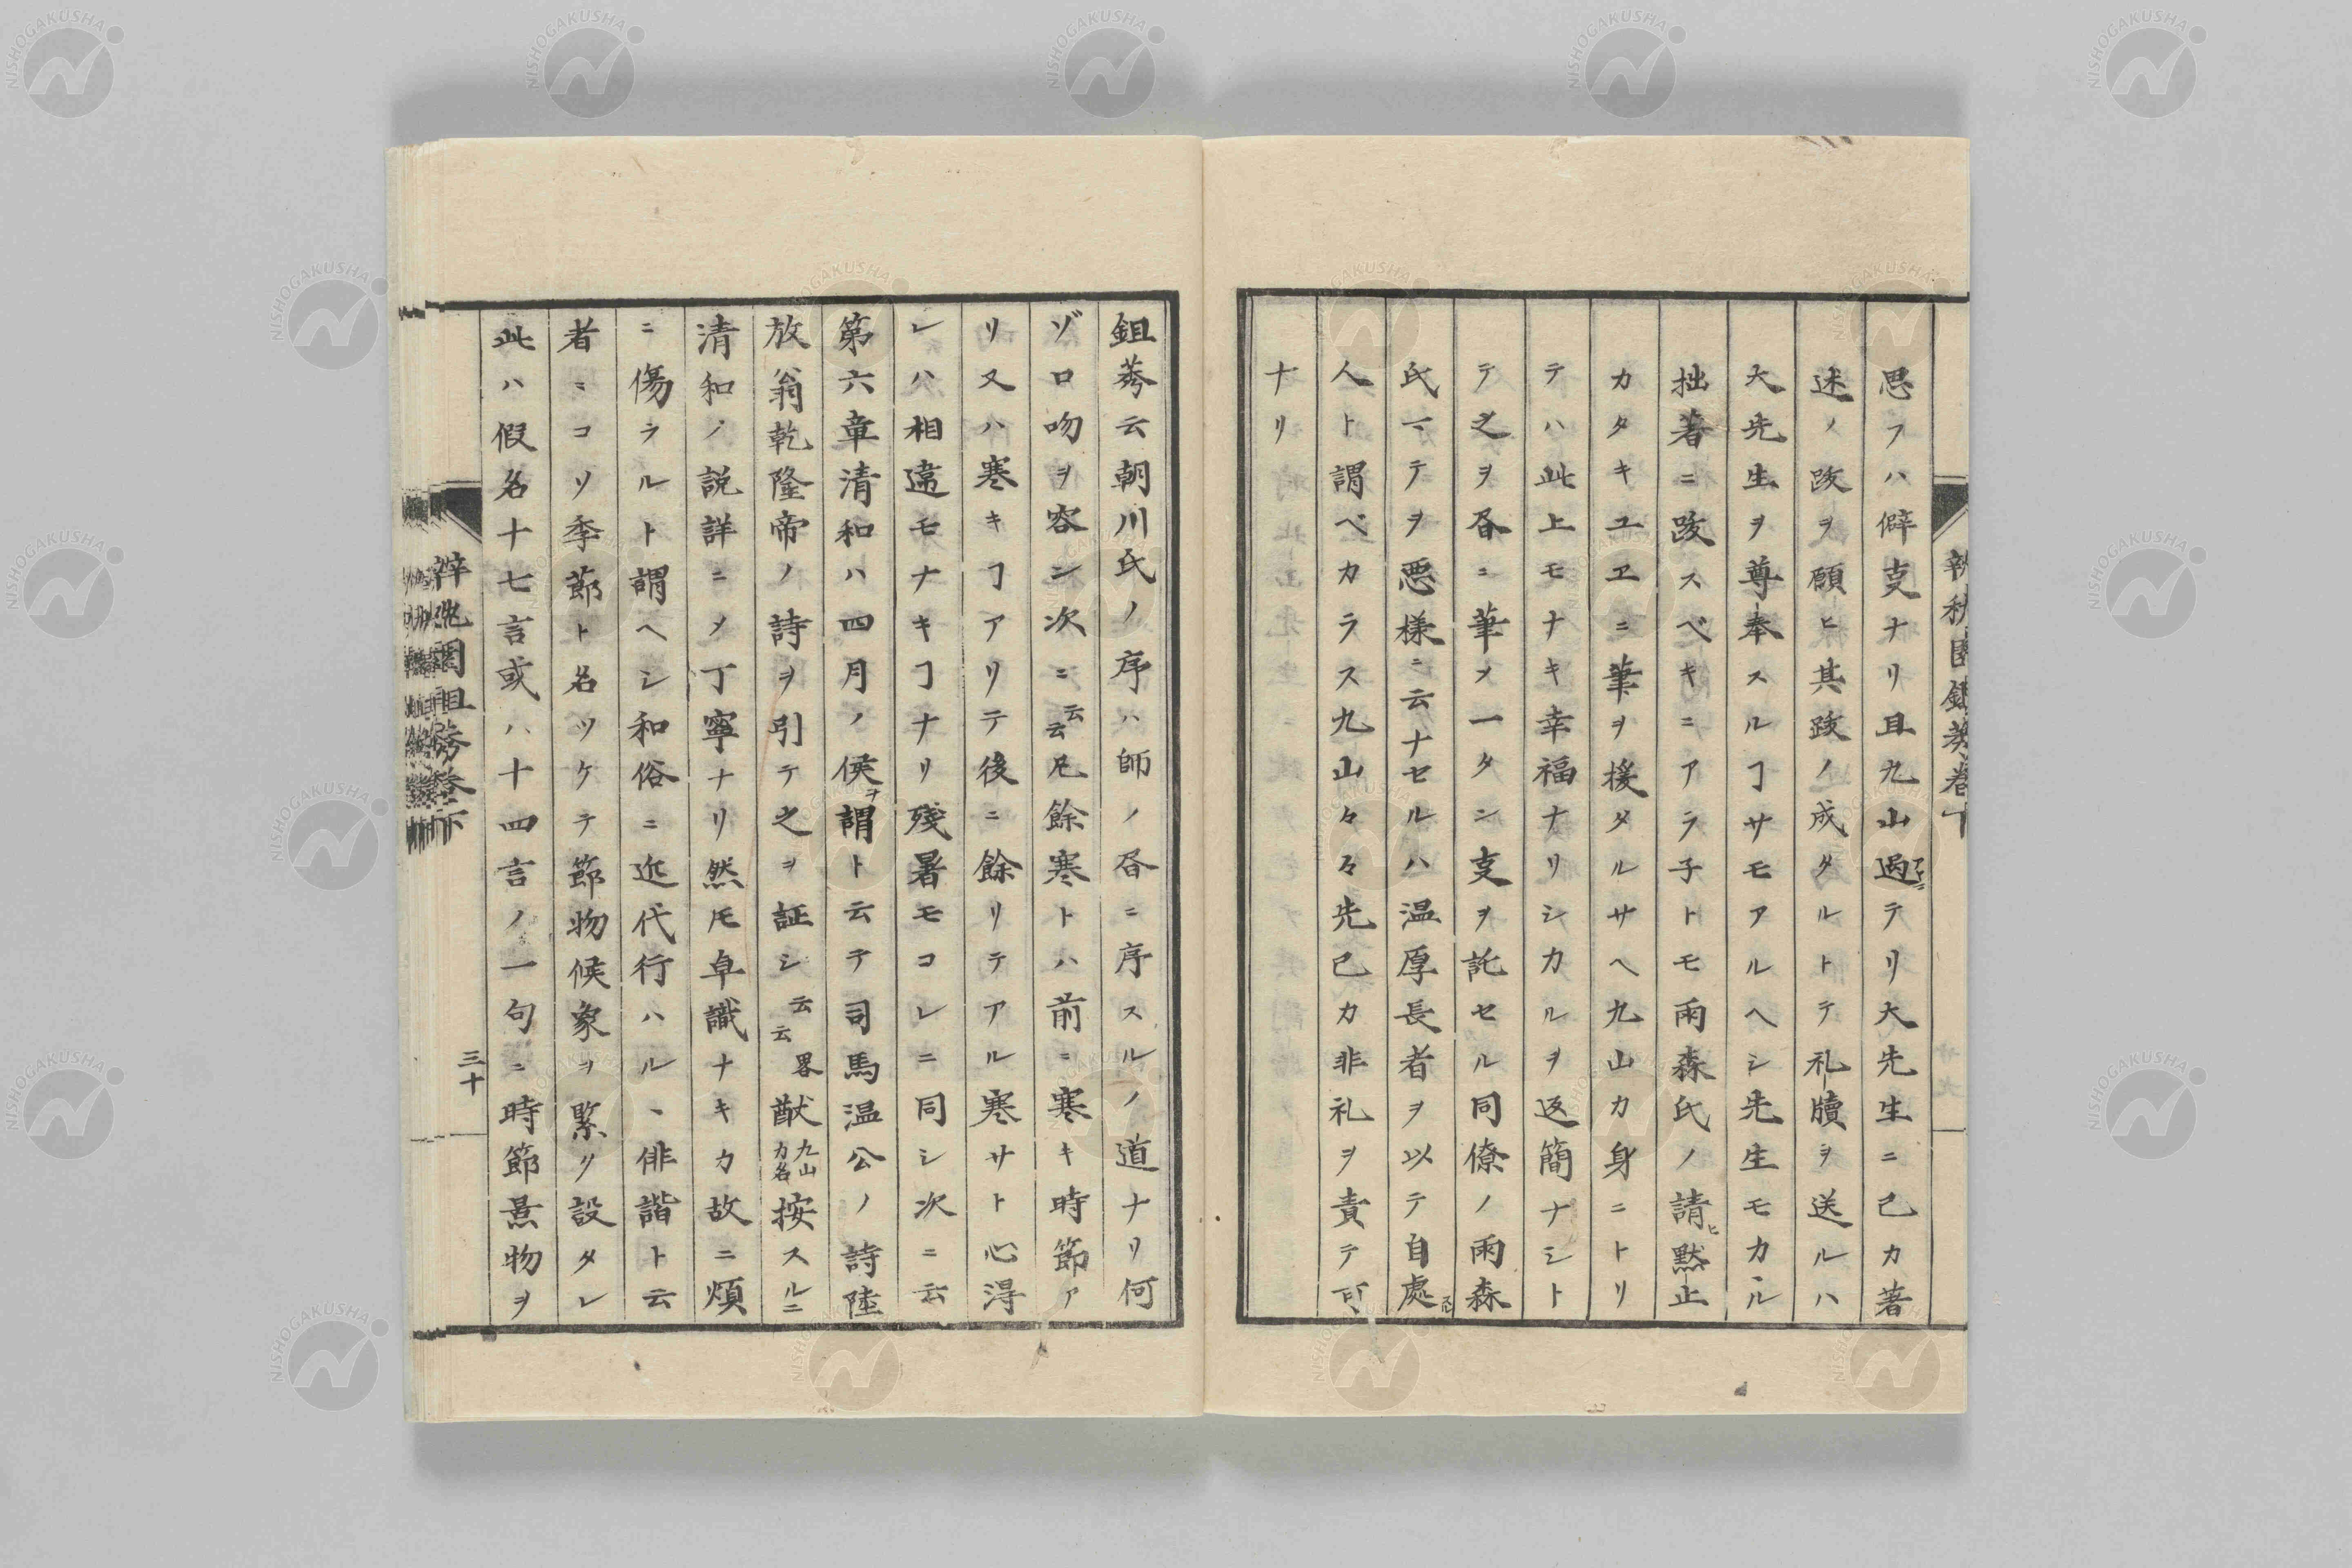 思フハ僻支ナリ且九山過テリ大先生ニ己カ著
述ノ跋ヲ願ヒ其跋ノ成タルトテ礼牘ヲ送ルハ
大先生ヲ尊奉スルヿサモアルヘシ先生モカヽル
拙著ニ跋スベキニアラ子トモ雨森氏ノ請ヒ黙止
カタキユヱニ筆ヲ援タルサヘ九山カ身ニトリ
テハ此上モナキ幸福ナリシカルヲ返簡ナシト
テ之ヲ昏ニ筆メ一タン支ヲ託セル同僚ノ雨森
氏マテヲ悪様ニ云ナセルハ温厚長者ヲ以テ自處スル
人ト謂ベカラス九山々々先己カ非礼ヲ責テ可
ナリ
鉏莠云朝川氏ノ序ハ師ノ昏ニ序スルノ道ナリ何
ゾロ吻ヲ容ン次ニ云云凡餘寒トハ前ニ寒キ時節ア
リ又ハ寒キヿアリテ後ニ餘リテアル寒サト心淂
レハ相違モナキヿナリ殘暑モコレニ同シ次ニ云
第六章清和ハ四月ノ候ヲ謂ト云テ司馬温公ノ詩陸
放翁乾隆帝ノ詩ヲ引テ之ヲ証シ云云畧猷九山カ名按スルニ
清和ノ説詳ニメ丁寧ナリ然𪜈卓識ナキカ故ニ煩
ニ傷ラルト謂ヘシ和俗ニ近代行ハルヽ俳諧ト云
者ニコソ季節ト名ツケテ節物候象ヲ緊リ設タレ
此ハ假名十七言或ハ十四言ノ一句ニ時節景物ヲ
三十